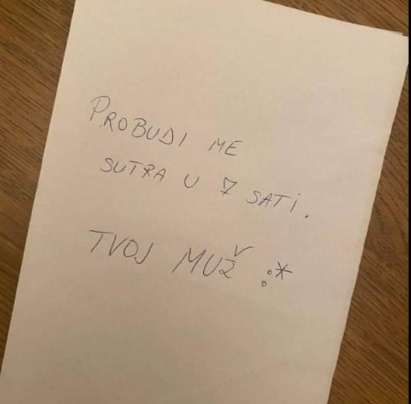 PROBUDI ME
SUTRA U 7 SATI.
TVOJ MUŽ :*